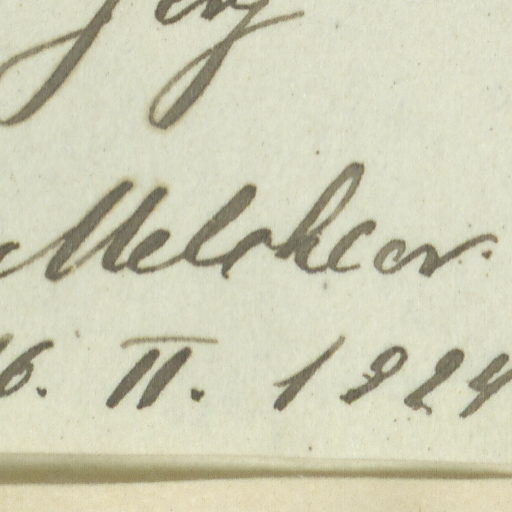 Melchior
16. II. 1924